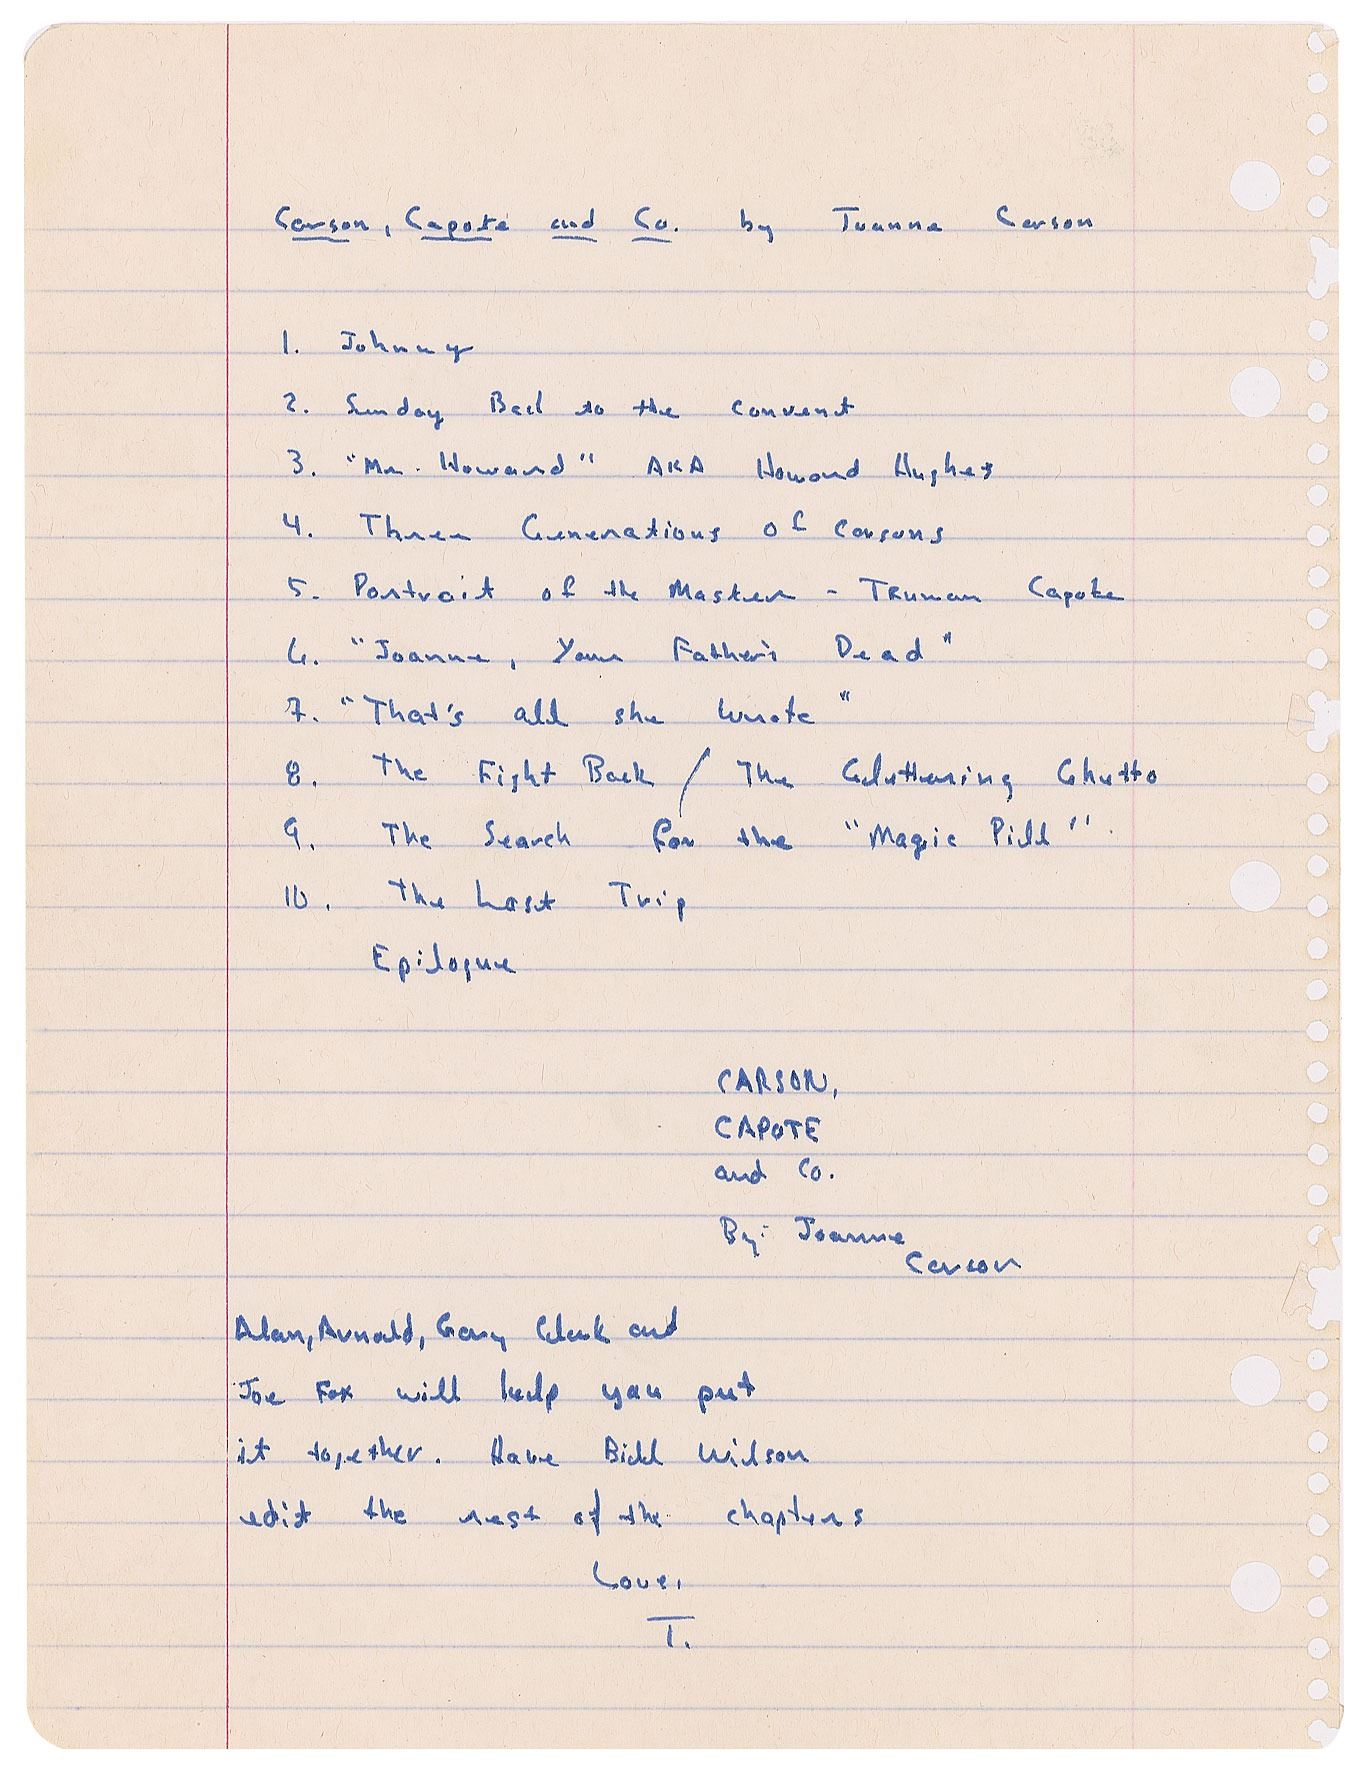 Carson, Capote and Co. by Joanne Carson
1. Johnny
2. Sunday Bed to the convent
3. "Mr. Howard" AKA Howard Hughes
4. Three Generations of Carsons
5. Portrait of the Master - Truman Capote
6. "Joanne, Your Father's Dead"
7. "That's all she wrote"
8. The Fight Back / The Glittering Ghetto
9. The Search for the "Magic Pill".
10. The Last Trip
Epilogue
CARSON,
CAPOTE
and Co.
By: Joanne
Carson
Alan, Arnold, Gary Clark and
Joe Fox will help you put
it together. Have Bill Wilson
edit the rest of the chapters
Love,
T.